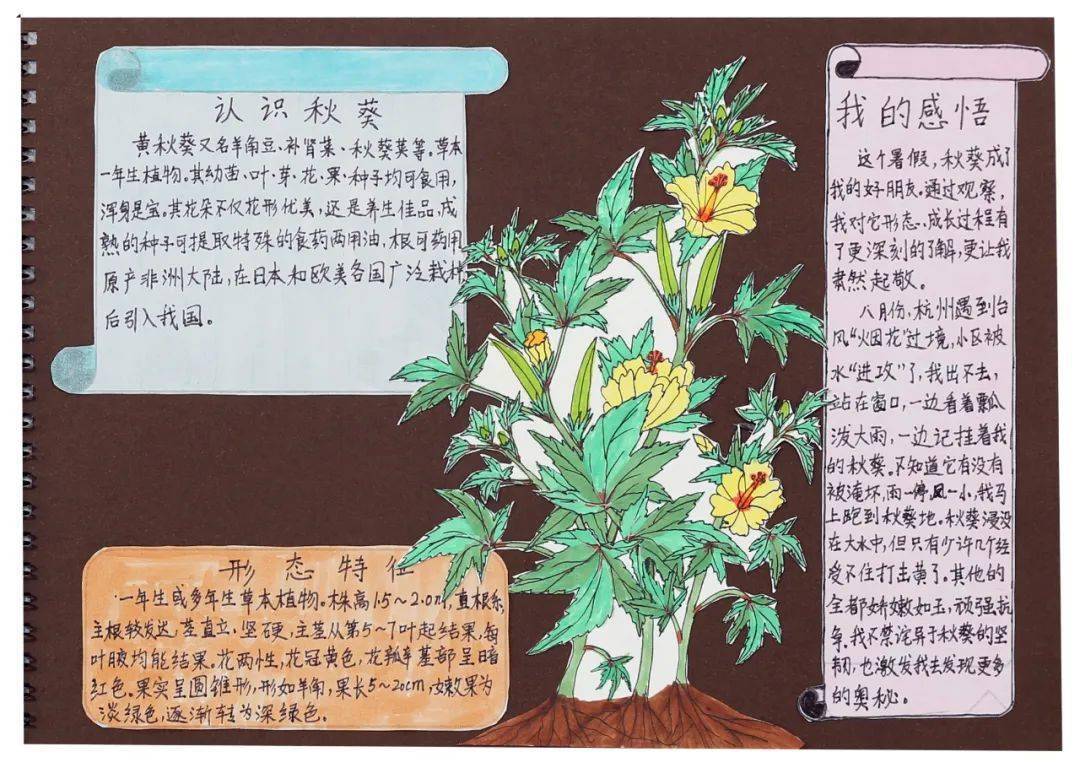 认识秋葵
黄秋葵又名羊角豆、补肾菜、秋葵荚等。草本
一年生植物。其幼苗、叶、芽、花、果、种子均可食用,
浑身是宝。其花朵不仅花形优美,还是养生佳品,成
熟的种子可提取特殊的食药两用油,根可药用
原产非洲大陆,在日本和欧美各国广泛栽种
后引入我国。
形态特征
一年生或多年生草本植物。株高1.5~2.0m,直根系,
主根较发达,茎直立、坚硬,主茎从第5~7叶起结果,每
叶腋均能结果。花两性,花冠黄色,花瓣基部呈暗
红色。果实呈圆锥形,形如羊角,果长5~20cm,嫩果为
淡绿色,逐渐转为深绿色。
我的感悟
这个暑假,秋葵成了
我的好朋友。通过观察,
我对它形态、成长过程有
了更深刻的了解,更让我
肃然起敬。
八月份,杭州遇到台
风“烟花”过境,小区被
水“进攻”了,我出不去,
站在窗口,一边看着瓢
泼大雨,一边记挂着我
的秋葵。不知道它有没有
被淹坏,雨一停,风一小,我马
上跑到秋葵地。秋葵浸没
在大水中,但只有少许几个经
受不住打击黄了。其他的
全都娇嫩如玉,顽强抗
争。我不禁诧异于秋葵的坚
韧,也激发我去发现更多
的奥秘。